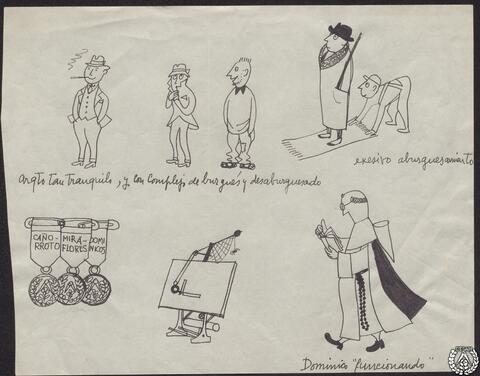 Arqto tan tranquilo, y con complejo de burgués y desaburguesado
exesivo aburguesamiento
CAÑO-
RROTO
MIRA-
FLORES
DOMI
NICOS
Dominico "funcionando"